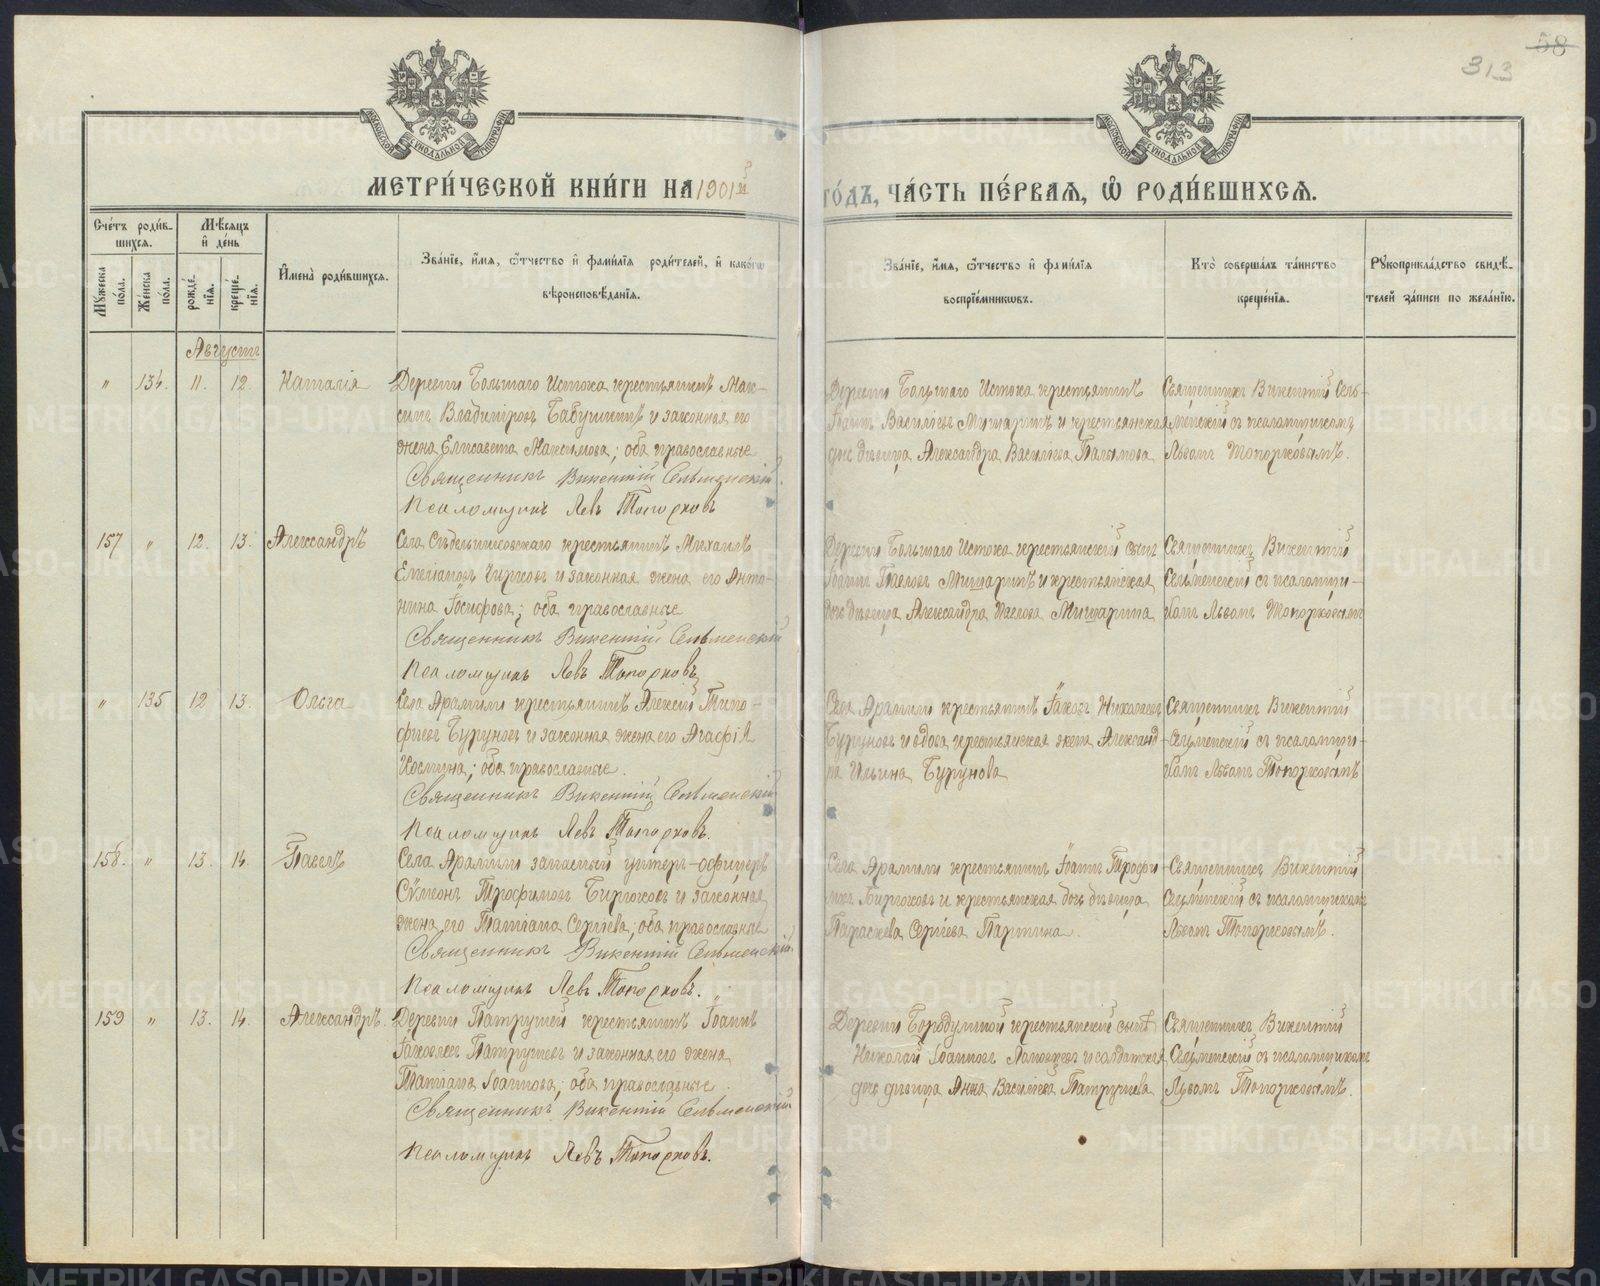 58
313
МОСКОВСКОЙ СѴНОДАЛЬНОЙ ТИПОГРАФІИ
МОСКОВСКОЙ СѴНОДАЛЬНОЙ ТИПОГРАФІИ
МЕТРИ́ЧЕСКОЙ КНИ́ГИ НА 1901й ГО́ДЪ, ЧА́СТЬ ПЕ́РВАЯ, Ѡ РОДИ́ВШИХСЯ.
Сче́тъ роди́в-
шихся.
Мѣ́сяцъ
и҆ де́нь
Мꙋ́жеска по́ла.
Же́нска по́ла.
рожде́-
нїя.
креще́-
нїя.
И҆мена̀ роди́вшихся.
Зва́нїе, и҆́мя, ѻ҆́тчество и҆ фами́лїя роди́телей, и҆ како́гѡ
вѣроисповѣ́данїя.
Зва́нїе, и҆́мя, ѻ҆́тчество и҆ фами́лїя
воспрїе́мникѡвъ.
Кто̀ соверша́лъ та́инство
креще́нїя.
Рꙋкоприкла́дство свидѣ́-
телей за́писи по жела́нїю.
Августъ
" 134. 11. 12. Наталія
Деревни Большаго Истока крестьянинъ Мак-
симъ Владиміровъ Бабушкинъ и законная его
жена Елисавета Максимова; оба православные
Священникъ Викентій Сельменскій.
Псаломщикъ Левъ Топорковъ
Деревни Большаго Истока крестьянинъ
Іоаннъ Васильевъ Мишаринъ и крестьянская
дочь дѣвица Александра Васильева Палымова
Священникъ Викентій Сель-
менскій съ псаломщикомъ
Львомъ Топорковымъ.
157 " 12. 13. Александръ
Села крестьянинъ Михаилъ
Емеліановъ Чирковъ и законная жена его Анто-
нина Іосифова; оба православные
Священникъ Викентій Сельменскій
Псаломщикъ Левъ Топорковъ
Деревни Большаго Истока крестьянскій сынъ
Іоаннъ Павловъ Мишаринъ и крестьянская
дочь дѣвица Александра Павлова Мишарина
Священникъ Викентій
Сельменскій съ псаломщи-
комъ Львомъ Топорковымъ
" 135 12 13. Ольга
Села Арамили крестьянинъ Алексій Тимо-
фѣевъ Буруновъ и законная жена его Агафія
Космина; оба православные.
Священникъ Викентій Сельменскій
Псаломщикъ Левъ Топорковъ.
Села Арамили крестьянинъ Іаковъ Николаевъ
Буруновъ и вдова крестьянская жена Александ-
ра Ильина Бурунова
Священникъ Викентій
Сельменскій съ псаломщи-
комъ Львомъ Топорковымъ
158. " 13. 14. Павелъ
Села Арамили запасный унтеръ-офицеръ
Сѷмеонъ Трофимовъ Бирюковъ и законная
жена его Татіана Сергіева; оба православные
Священникъ Викентій Сельменскій
Псаломщикъ Левъ Топорковъ.
Села Арамили крестьянинъ Іоаннъ Трофи-
мовъ Бирюковъ и крестьянская дочь дѣвица
Параскева Сергіева Партина.
Священникъ Викентій
Сельменскій съ псаломщикомъ
Львомъ Топорковымъ.
159 " 13. 14. Александръ.
Деревни Патрушей крестьянинъ Іоаннъ
Іаковлевъ Патрушевъ и законная его жена
Татіана Іоаннова; оба православные.
Священникъ Викентій Сельменскій
Псаломщикъ Левъ Топорковъ.
Деревни Бородулиной крестьянскій сынъ
Николай Іоанновъ и солдатская
дочь дѣвица Анна Васильева Патрушева
Священникъ Викентій
Сельменскій съ псаломщикомъ
Львомъ Топорковымъ.
METRIKI.GASO-URAL.RU